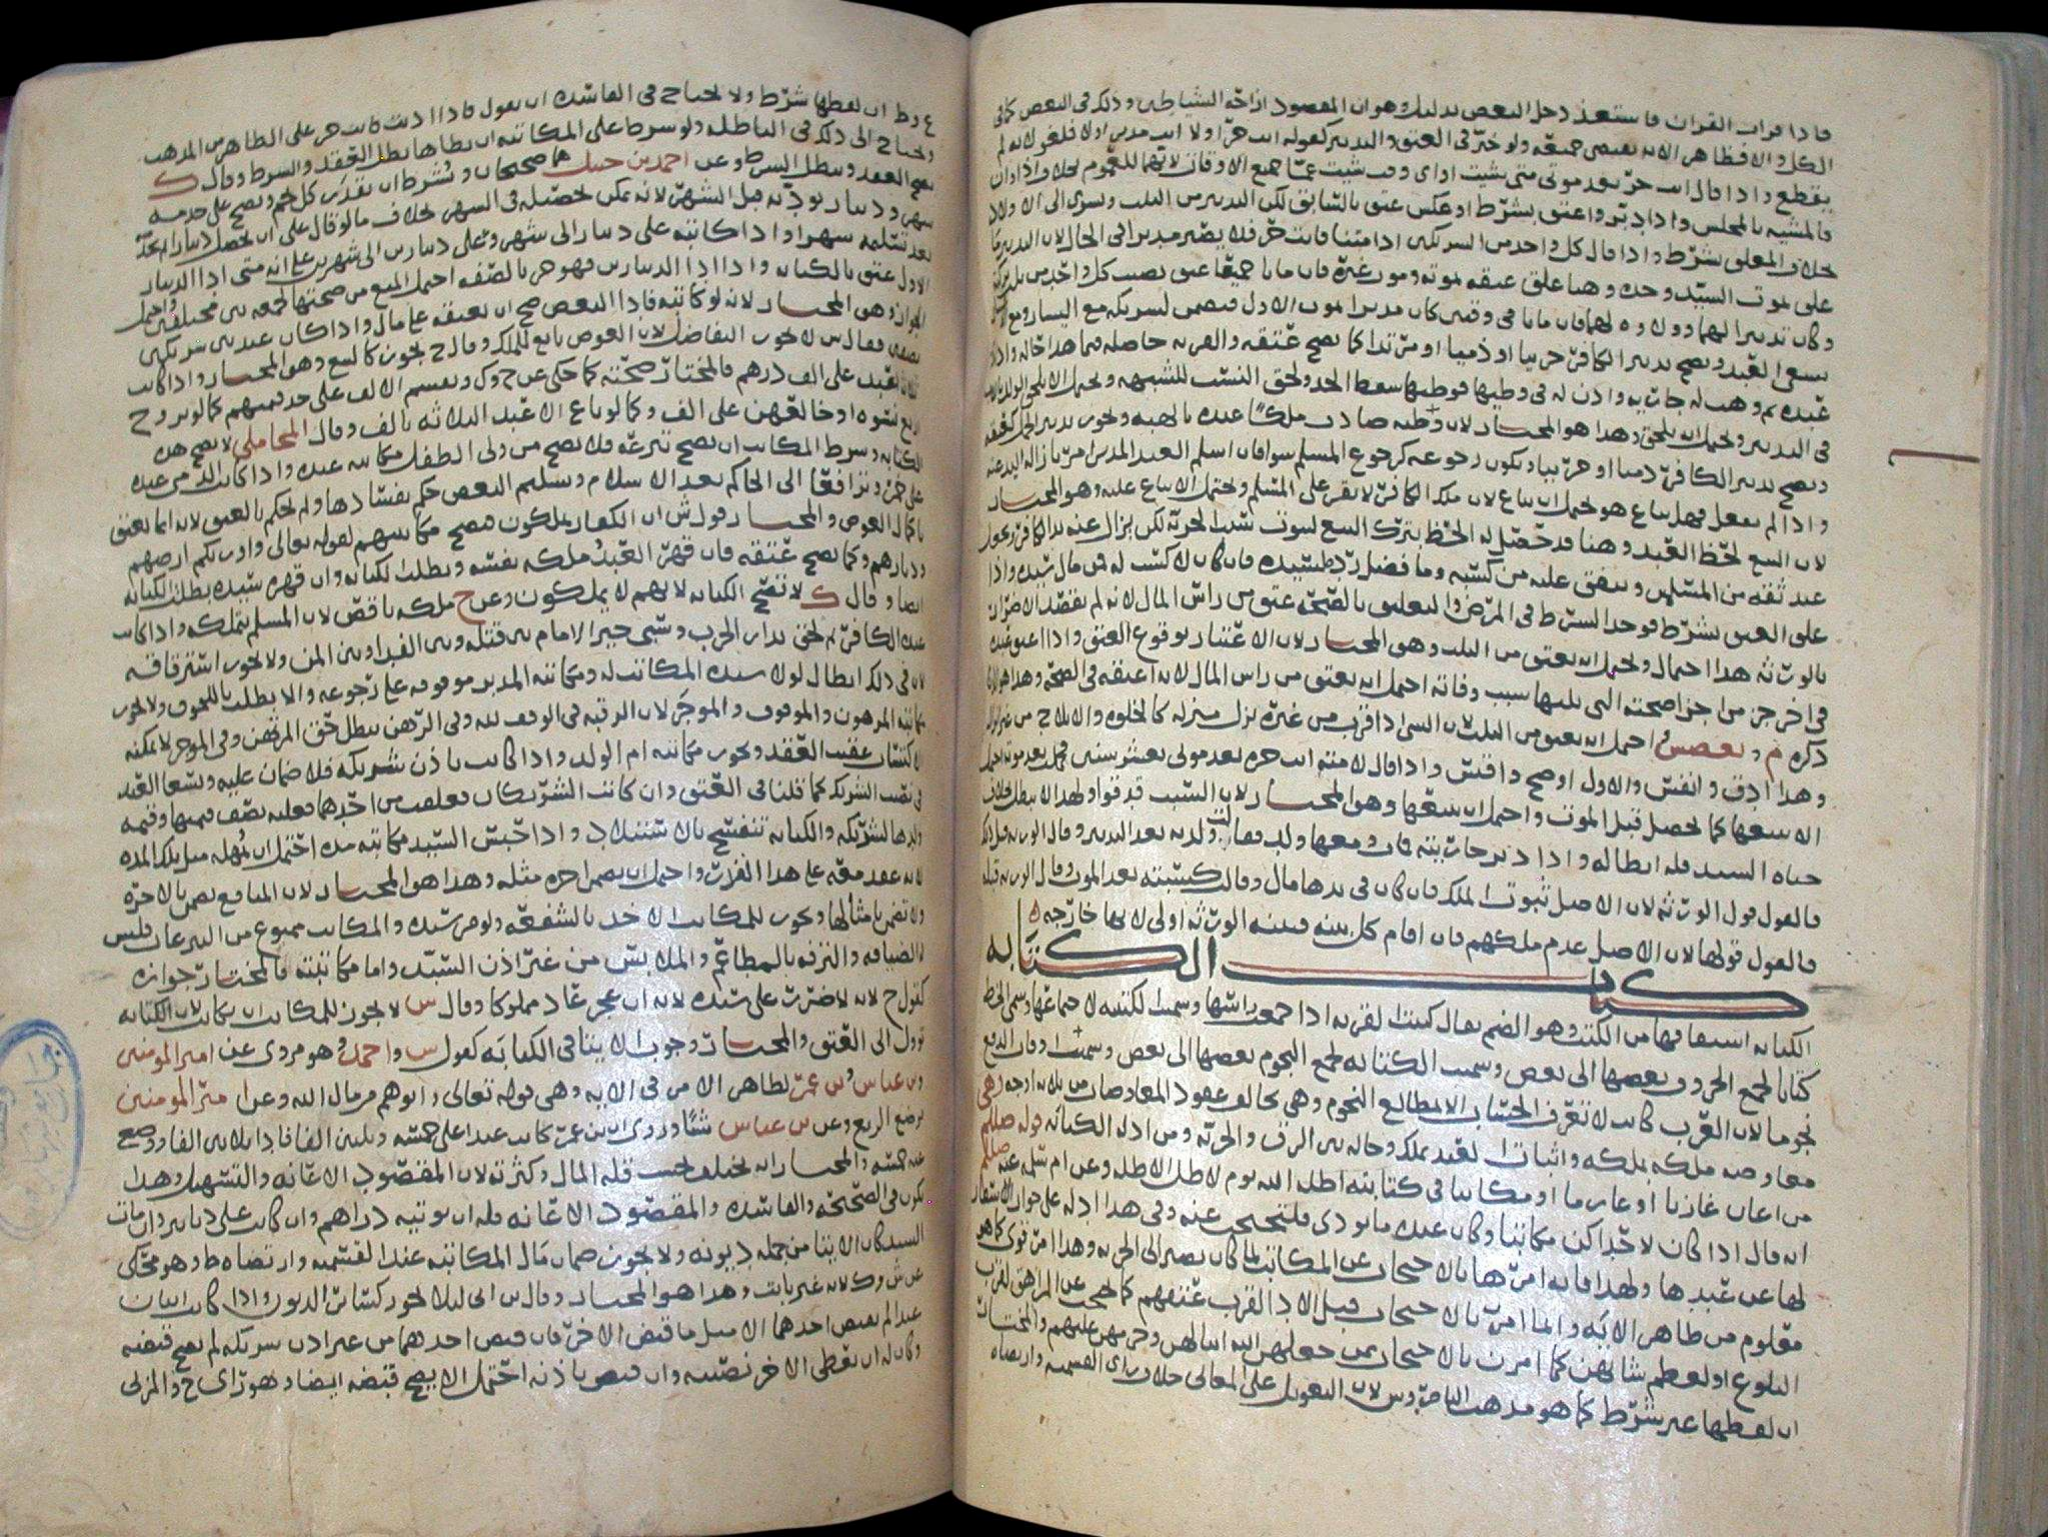 فاذا قرات القران فاستعذ دخل البعض بدليل وهو ان المقصود ازاحة الشياطين وذلك في البعض كما في
الكل والا فظاهر الآية يقتضي جميعه ولو خير في العتق والتدبير كقوله انت حر اولا انت مدبر اولا فلغو لانه لم
يقطع واذا قال انت حر بعد موتي متى شيت او اي وقت شيت عم جميع الاوقات لانهما للعموم بخلاف اذا وان
فالمشيه بالمجلس واذا دبر واعتق بشرط او عكس عتق بالسابق لكن التدبير من الثلث ويسري الى الاولاد
بخلاف المعلق بشرط واذا قال كل واحد من الشريكين اذا متنا فانت حر فلا يصير مدبرا في الحال لان التدبير
على موت السيد وحده وهنا علق عتقه بموته وموت غيره فان ماتا جميعا عتق نصيب كل واحد من
وكان تدبيرا لهما وولاوه لهما فان ماتا في وقتين كان مدبرا بموت الاول فيضمن لشريكه مع اليسار ومع
يسعى العبد ويصح تدبير الكافر حربيا او ذميا او مرتدا كما يصح عتقه والقربه حاصله فيما هذا حاله واذا
عبده ثم وهب له جاريه واذن له في وطيها فوطيها سقط الحد ولحق النسب للشبهه ويحتمل الا يلحق الولد
في التدبير ويحتمل ان يلحق وهذا هو المختار لان وطئه صادف ملكا عنده بالهبه ويجوز تدبير الحمل كعتقه
ويصح تدبير الكافر ذميا او حربيا ويكون رجوعه كرجوع المسلم سوا فان اسلم العبد المدبر امر بازالة اليد عنه
واذا لم يفعل فهل يباع هو يحتمل ان يباع لان ملك الكافر لا يقر على المسلم ويحتمل الا يباع عليه وهو المختار
لان البيع لحظ العبد وهنا قد حصل له الحظ بترك البيع لثبوت سبب الحريه لكن يزال عنه يد الكافر ويجعل
عند ثقه من المسلمين وينفق عليه من كسبه وما فضل رد على سيده فان كان لا كسب له فمن مال سيده واذا
علق العتق بشرط فوجد الشرط في المرض والتعليق بالصحه عتق من راس المال لانه لم يقصد الاضرار
بالورثه هذا احتمال ويحتمل انه يعتق من الثلث وهو المختار لان الاعتبار بوقوع العتق واذا اعتق عبده
في اخر جزء من اجزا صحته التي يليها سبب وفاته احتمل انه يعتق من راس المال لانه اعتقه في الصحه وهذا هو الذي
ذكره م و بعض ش احتمل انه يعتق من الثلث لان الشي اذا قرب من غيره نزل منزله كالخلوه والايلاج من غير انزال
وهذا ادق وانفس والاول اوضح واقيس واذا قال لامته انت حره بعد موتي بعشر سنين فهل بعد موته احتمل
الا يبيعها كما يحصل قبل الموت واحتمل ان يبيعها وهو المختار لان السبب قد قوا ولهذا لا يبطل بخلاف
حياه السيد فله ابطاله واذا دبر جاريته فمات ومعها ولد فقالت ولدته بعد التدبير وقال الورثه قبل ذلك
فالقول قول الورثه لان الاصل ثبوت الملك فان كان في يدها مال وقالت كسبته بعد الموت وقال الورثه قبله
فالقول قولها لان الاصل عدم ملكهم فان اقام كل بينه فبينه الورثه اولى لانها خارجه
كتاب الكتابه
الكتابه اشتقاقها من الكتب وهو الضم يقال كتبت القربه اذا جمعت راسها وسميت الكتيبه لاجتماعها وسمي الخط
كتابا لجمع الحروف بعضها الى بعض وسميت الكتابه لجمع النجوم بعضها الى بعض وسميت اوقات الدفع
نجوما لان العرب كانت لا تعرف الحساب الا بمطالع النجوم وهي تخالف عقود المعاوضات من ثلاثه اوجه وهي
معاوضه ملكه بملكه واثبات العبد يملك وحاله بين الرق والحريه ومن ادله الكتابه قوله صللم
من اعان غازيا او غارما او مكاتبا في كتابته اظله الله يوم لا ظل الا ظله وعن ام سلمه عنه صللم
انه قال اذا كان لاحداكن مكاتبا وكان عنده ما يودي فلتحتجب عنه وفي هذا ادله على جواز الاستتار
لها عن عبدها ولهذا فانه امرها بالاحتجاب عن المكاتب لما كان يصير الى الحريه وهذا امر قوي كما هو
معلوم من ظاهر الآيه وانما امر بالاحتجاب قبل الادا لقرب عتقهم كما يحتجب عن المراهق لقرب
البلوغ او لعظم شانهن كما امرن بالاحتجاب ممن جعلهن الله امهاتهن وحرمهن عليهم والمختار
ان لفظها غير شرط كما هو مذهب الناصر وس لان التعويل على المعاني خلاف راي القسميه وارتضاه
ع وط ان لفظها شرط ولا يحتاج في الفاسده ان يقول فاذا اديت فانت حر على الظاهر من المذهب
ويحتاج الى ذلك في الباطله ولو شرط على المكاتبه ان يطاها بطل العقد والشرط وقال ك
يصح العقد ويبطل الشرط وعن احمد بن حنبل هما صحيحان ويشترط ان يقدر كل نجم ويصح على خدمه
شهر ودينار يوديه قبل الشهر لانه يمكن تحصيله في الشهر بخلاف ما لو قال على ان تحصل دينارا بخدمه
بعد تسلمه شهرا واذا كاتبه على دينار الى شهر وعلى دينارين الى شهرين على انه متى ادا الدينار
الاول عتق بالكتابه واذا ادا الدينارين فهو حر بالصفه احتمل المنع من صحتها لجمعه بين مختلفين واحتمل
الجواز وهو المختار لانه لو كاتبه فادا البعض صح ان يعتقه على مال واذا كان عبد بين شريكين
نصفين فقال س لا يجوز التفاضل لان العوض تابع للملك وقال ح يجوز كالبيع وهو المختار واذا كاتب
ثلاثة اعبد على الف درهم فالمختار صحته كما حكي عن ح وك ويقسم الالف على حد قيمتهم كما لو تزوج
اربع نسوه او خالعهن على الف وكما لو باع الاعبد الثلاثه بالف وقال المحاملي لا يصح هذه
الكتابه وشرط المكاتب ان يصح تبرعه فلا يصح من ولي الطفل مكاتبه عبده واذا كاتب الذمي عبده
على خمر وترافعا الى الحاكم بعد الاسلام وتسليم البعض حكم بفسادها ولم يحكم بالعتق لانه انما يعتق
بكمال العوض والمختار قول ش ان الكفار يملكون فيصح مكاتبهم لقوله تعالى واورثكم ارضهم
وديارهم وكما يصح عتقه فان قهر العبد ملكه نفسه وبطلت الكتابه وان قهره سيده بطلت الكتابه
ايضا وقال ك لا تصح الكتابه لانهم لا يملكون وعن ح ملكه ناقص لان المسلم يتملكه واذا كاتب
عبده الكافر ثم لحق بدار الحرب وسبي خير الامام بين قتله وبين الفدا وبين المن ولا يجوز استرقاقه
لان في ذلك ابطال لولا سيده المكاتب له ومكاتبه المدبر موقوفه على رجوعه والا بطلت بالموت ولا تجوز
مكاتبه المرهون والموقوف والموجر لان الرقبه في الوقف لله وفي الرهن يبطل حق المرتهن وفي الموجر لا يمكنه
الاكتساب عقيب العقد وتجوز مكاتبه ام الولد واذا كاتب باذن شريكه فلا ضمان عليه ويسعا العبد
في نصيب الشريك كما قلنا في العتق وان كانت الشريكان فعلقت من احدهما فعليه نصف قيمتها وقيمه
ولدها لشريكه والكتابه تنفسخ بالاستيلاد واذا حبس السيد مكاتبه مده احتمل ان يمهله مثل تلك المده
لانه عقد معه على هذا الفوات واحتمل ان يضمن اجره مثله وهذا هو المختار لان المنافع تضمن بالاجره
ولا تضمن بامثالها وتجوز للمكاتب الاخذ بالشفعه ولو من سيده والمكاتب ممنوع من التبرعات فليس
له الضيافه والترفه بالمطاعم والملابس من غير اذن السيد واما مكاتبته فالمختار جوازه
كقول ح لانه لا ضرر على سيده لانه ان عجز عاد مملوكا وقال س لا يجوز للمكاتب ان يكاتب لان الكتابه
توول الى العتق والمختار وجوب الايتا في الكتابه كقول س واحمد وهو مروي عن امير المومنين
وبن عباس وبن عمر لظاهر الامر في الآيه وهي قوله تعالى واتوهم من مال الله وعن امير المومنين
يوضع الربع وعن بن عباس شيئا وروي ان بن عمر كاتب عبدا على خمسه وثلثين الفا فادا ثلاثين الفا ووضع
عنه خمسه والمختار انه يختلف بحسب قله المال وكثرته لان المقصود الاعانه والتسهيل وهذا
يكون في الصحيحه والفاسده والمقصود الاعانه فله ان يوتيه دراهم وان كاتب على دنانير وان مات
السيد كان الايتا من جمله ديونه ولا يجوز ضمان مال المكاتبه عند القسميه وارتضاه ط وهو محكي
عن ش وك لانه غير ثابت وهذا هو المختار وقال بن ابي ليلا يجوز كسائر الديون واذا كاتب اثنان
عبدا لم يقبض احدهما الا مثل ما قبض الاخر فان قبض احدهما من غير اذن شريكه لم يصح قبضه
وكان له ان يعطي الاخر نصيبه وان قبض باذنه احتمل الا يصح قبضه ايضا وهو راي ح والمزني